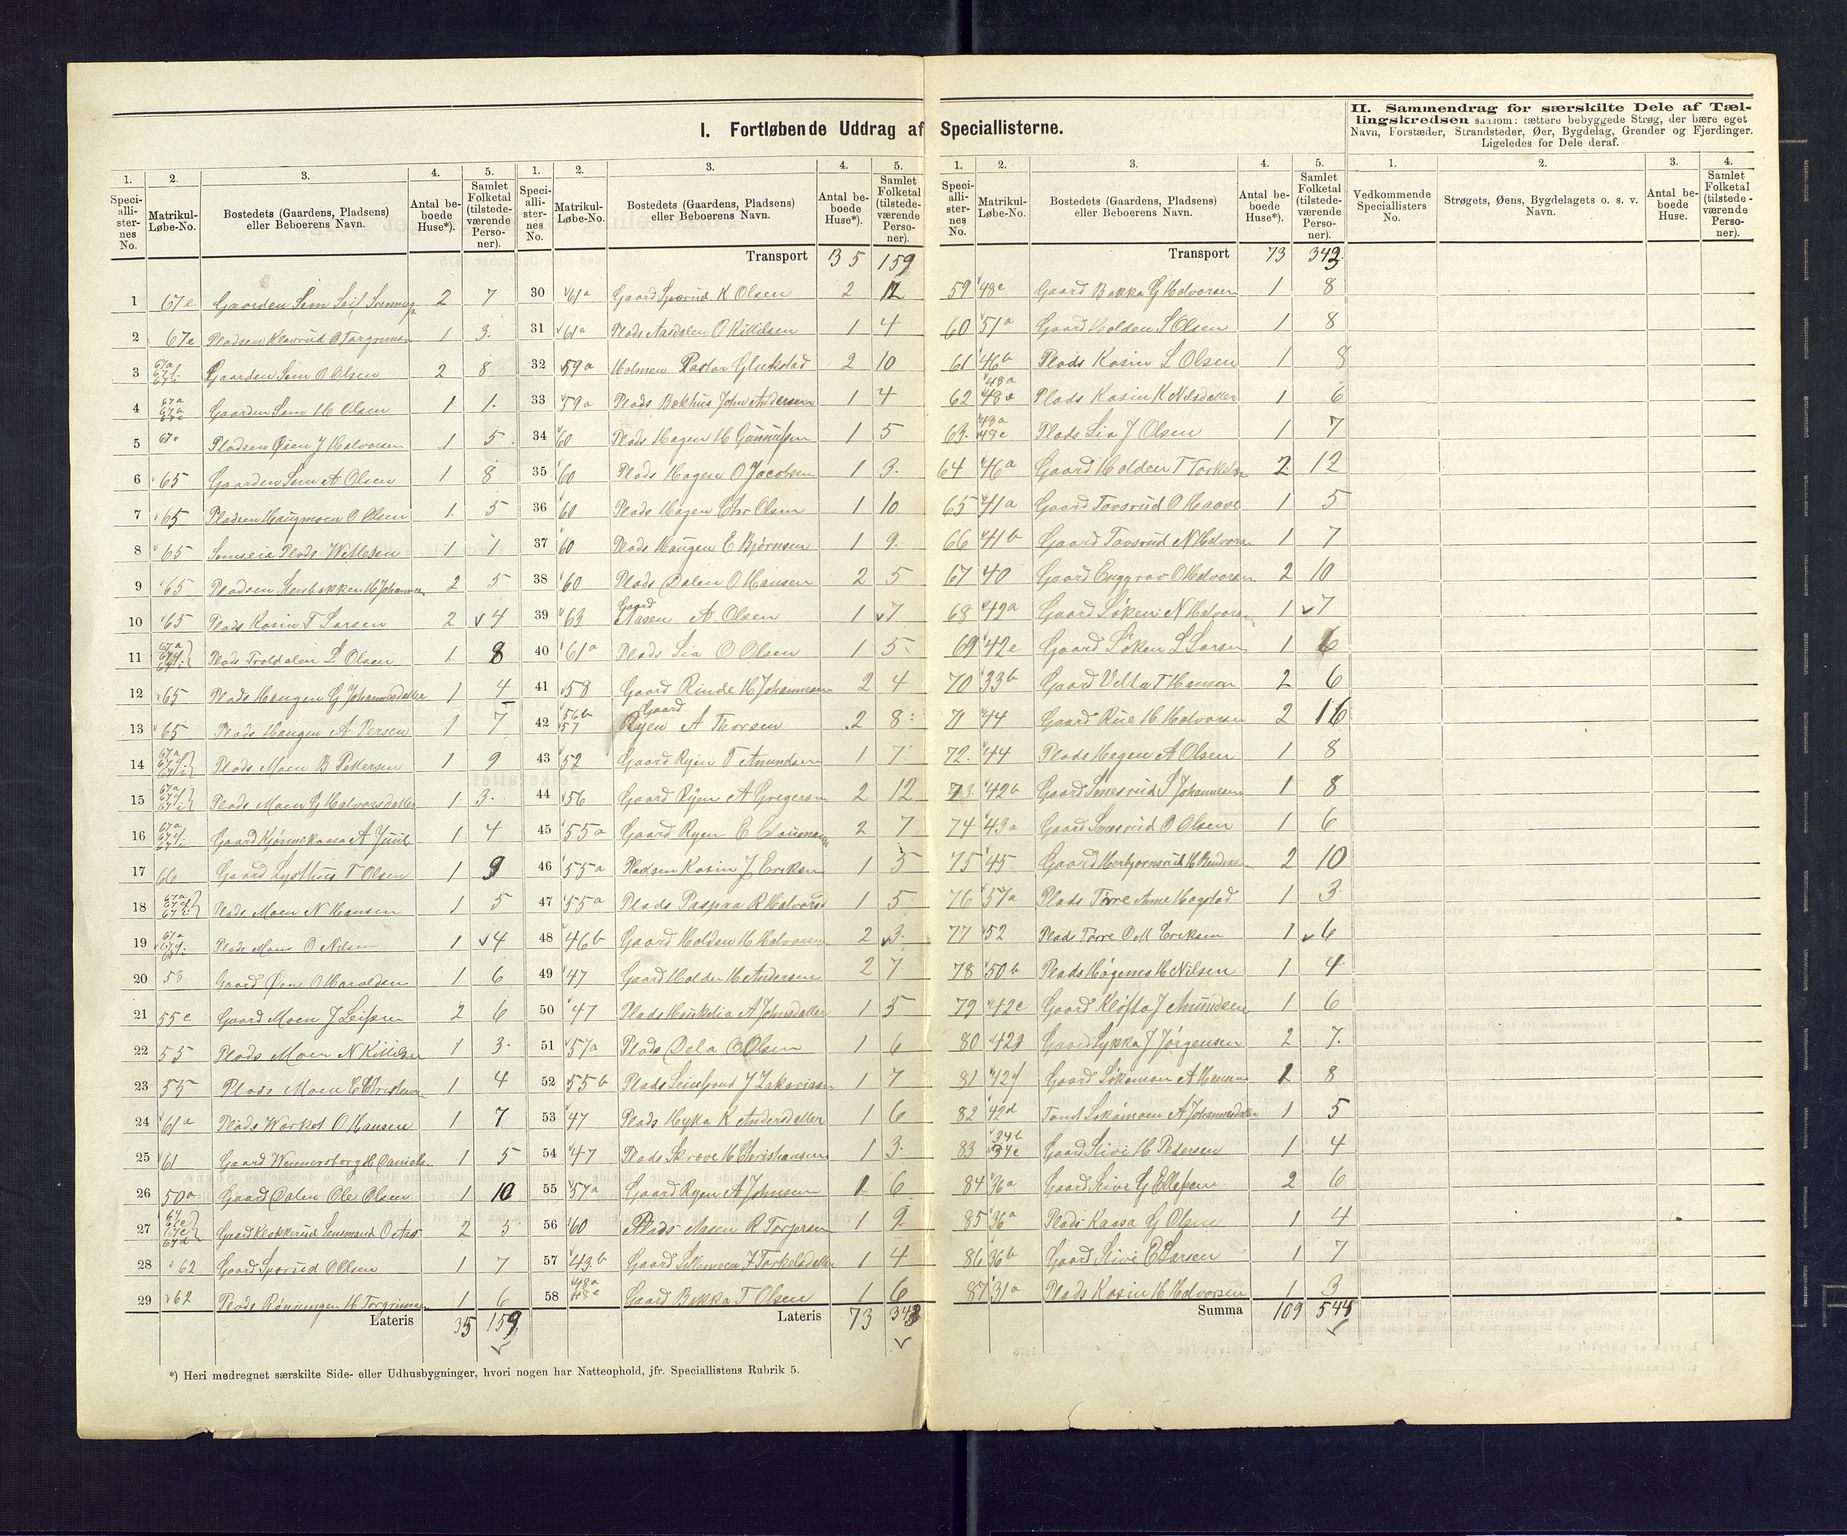 I. Fortløbende Uddrag af Speciallisterne.
II. Sammendrag for særskilte Dele af Tæl-
lingskredsen saasom: tættere bebyggede Strøg, der bære eget
Navn, Forstæder, Strandsteder, Øer, Bygdelag, Grender og Fjerdinger.
Ligeledes for Dele deraf.
1. 2. 3. 4. 5. 1. 2. 3. 4. 5. 1. 2. 3. 4. 5. 1. 2. 3. 4.
Speciallisternes No. Matrikul-Løbe-No. Bostedets (Gaardens, Pladsens) eller Beboerens Navn. Antal beboede Huse*). Samlet Folketal (tilstedeværende Personer).
Speciallisternes No. Matrikul-Løbe-No. Bostedets (Gaardens, Pladsens) eller Beboerens Navn. Antal beboede Huse*). Samlet Folketal (tilstedeværende Personer).
Speciallisternes No. Matrikul-Løbe-No. Bostedets (Gaardens, Pladsens) eller Beboerens Navn. Antal beboede Huse*). Samlet Folketal (tilstedeværende Personer).
Vedkommende Speciallisters No. Strøgets, Øens, Bygdelagets o. s. v. Navn. Antal beboede Huse. Samlet Folketal (tilstedeværende Personer).
1 67e Gaarden Sem 2 7
2 67e Pladsen 1 3.
3 Gaarden Sem O Olsen 2 8
4 Gaarden Sem H Olsen 1 1.
5 Pladsen Øien J Halvorsen 1 5
6 65 Gaarden Sem A Olsen 1 8
7 65 Pladsen Haugmoen O Olsen 1 5
8 65 Semseia Plads 1 1
9 65 Pladsen 2 5
10 65 Plads Kasin T Larsen 2 4
11 Plads Troldalen L Olsen 1 8
12 65 Plads Haugen G Johannesdatter 1 4
13 65 Plads Haugen A Persen 1 7
14 Plads Moen B Pettersen 1 9
15 Plads Moen G Halvorsdatter 1 3.
16 Gaard A Juul 1 4
17 66 Gaard Lysthus T Olsen 1 9
18 Plads Moen N Hansen 1 5
19 Plads Moen O Nilsen 1 4
20 58 Gaard Øen O Haralden 1 6
21 55c Gaard Moen J 2 6
22 55 Plads Moen N Kittilsen 1 3.
23 55 Plads Moen 1 4
24 61a Plads O Hansen 1 7
25 61 Gaard Wennersborg H 1 5
26 50a Gaard Dalen Ole Olsen 1 10
27 Gaard Klokkerud Lensmand O Aas 2 5
28 62 Gaard Sperud O Olsen 1 7
29 62 Plads Rønningen H Torgrimsen 1 6
Lateris 35 159
Transport 35 159
30 61a Gaard Sperud K Olsen 2 12
31 61a Plads Aasdalen O Kittilsen 1 4
32 59a Holmen Pastor Gluckstad 2 10
33 59a Plads Bakhus John Andersen 1 4
34 60 Plads Hagen H Gunnufsen 1 5
35 60 Plads Hagen O Jacobsen 1 3.
36 60 Plads Hagen Chr Olsen 1 10
37 60 Plads Haugen E Bjørnsen 1 9.
38 60 Plads Dalen O Hansen 2 5
39 63 Gaard Aasen A. Olsen 1 7
40 61a Plads Lia O Olsen 1 5
41 58 Gaard Rinde H Johannesen 2 4
42 56b 57 Gaard Ryen A Thorsen 2 8
43 52 Gaard Ryen T Amundsen 1 7
44 56 Gaard Ryen A Gregersen 2 12
45 55a Gaard Ryen E 2 7
46 55a Pladsen Kasin J Eriksen 1 5
47 55a Plads Paspaa R Halvorsd 1 5
48 46b Gaard Holden H Halvorsen 2 3.
49 47 Gaard Holden H Andersen 2 7
50 47 Plads Haukelia A Johnsdatter 1 5
51 57a Plads Dela O Olsen 1 6
52 55b Plads J Zakariasen 1 7
53 47 Plads Hyka K Andersdatter 1 6
54 47 Plads Skrove H Christiansen 1 3.
55 57a Gaard Ryen A Johnsen 1 6
56 60 Plads Aasen R Torjersen 1 9
57 43b Gaard J Torkelsdatter 1 4
58 48a 48e Gaard Bakka T Olsen 1 6
Lateris 73 343
Transport 73 343
59 48e Gaard Bakka G Halvorsen 1 8
60 51a Gaard Holden S Olsen 1 8
61 46b Plads Kasin L Olsen 1 8
62 48a 48e Plads Kasin K Nilsdatter 1 6
63. 48a 48e Plads Lia J Olsen 1 7
64 46a Gaard Holden T Torkelsen 2 12
65 41a Gaard Tovsrud O Haave 1 5
66 41b Gaard Tovsrud N Halvorsn 1 7
67 40 Gaard Enggrav O Halvorsen 2 10
68 42a Gaard Søken N Halvorsn 1 7
69 42e Gaard Søken L Larsen 1 6
70 33b Gaard Velta T Hansen 2 6
71 44 Gaard Rue H Halvorsen 2 16
72. 44 Plads Hagen A Olsen 1 8
73 42b Gaard Smesrud S Johannesen 1 8
74 43a Gaard Smesrud O Olsen 1 6
75 45 Gaard Herbjørnsrud H 2 10
76 57a Plads Torre Arne Hagstad 1 3
77 52 Plad Torre Eriksen 1 6
78 50b Plads H Nilsen 1 4
79 42c Gaard Kløfta J Amundsen 1 6
80 42d Gaard Lykka J Jørgensen 2 7.
81 42f Gaard Søkemoen A Hansen 1 8
82 42d Tomt Søkemoen A Johannesdatter 1 5
83 34b 34c Gaard Sivi H Pedersen 1 4
84 36a Gaard Sivi G Ellefsen 2 6
85 36a Plads Kaasa G Olsen 1 4
86 36b Gaard Sivi E Larsen 1 7
87 31a Plads Kasin H Halvorsen 1 3
Summa 109 544
*) Heri medregnet særskilte Side- eller Udhusbygninger, hvori nogen har Natteophold, jfr. Speciallistens Rubrik 5.